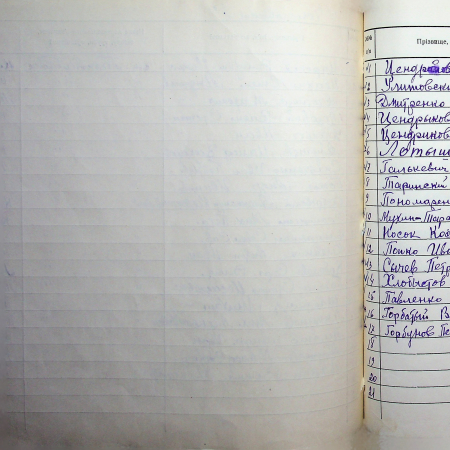 №№ п/п Прізвище,
1 Цендр
2 Улитовски
3 Дмитренко
4 Цендрыков
5 Цендриков
6 Латыш
7 Галькевич
8 Таринский
9 Пономарен
10 Мухина Тара
11 Носок
12 Попко Ива
13 Сычев Петр
14 Хлобыстов
15 Павленко
16 Горбатый В
17 Горбунов Пе
18
19
20
21